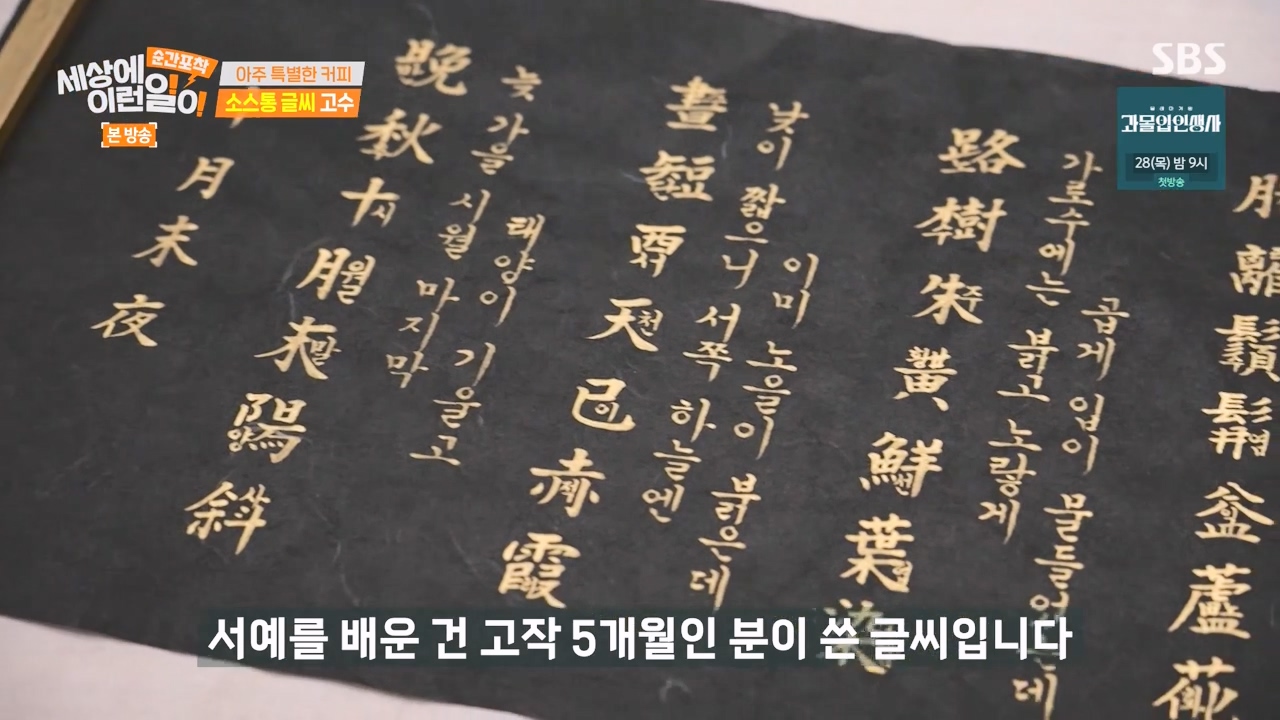 순간포착
세상에
이런일이!
본 방송
아주 특별한 커피
소스통 글씨 고수
SBS
과몰입인생사
28(목) 밤 9시
첫방송
月末夜
晩秋十시月월末말陽양斜
늦가을 시월 마지막
태양이 기울고
晝短西天천已이赤적霞
낮이 짧으니 서쪽 하늘엔
이미 노을이 붉은데
路樹朱주黃鮮선葉엽染
가로수에는 붉고 노랗게
곱게 입이 물들었는데
盆蘆
서예를 배운 건 고작 5개월인 분이 쓴 글씨입니다